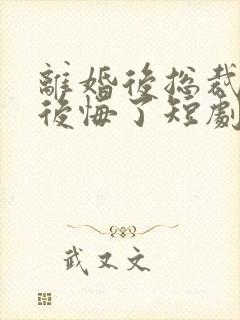 離婚後總裁
後悔了短劇
武又文